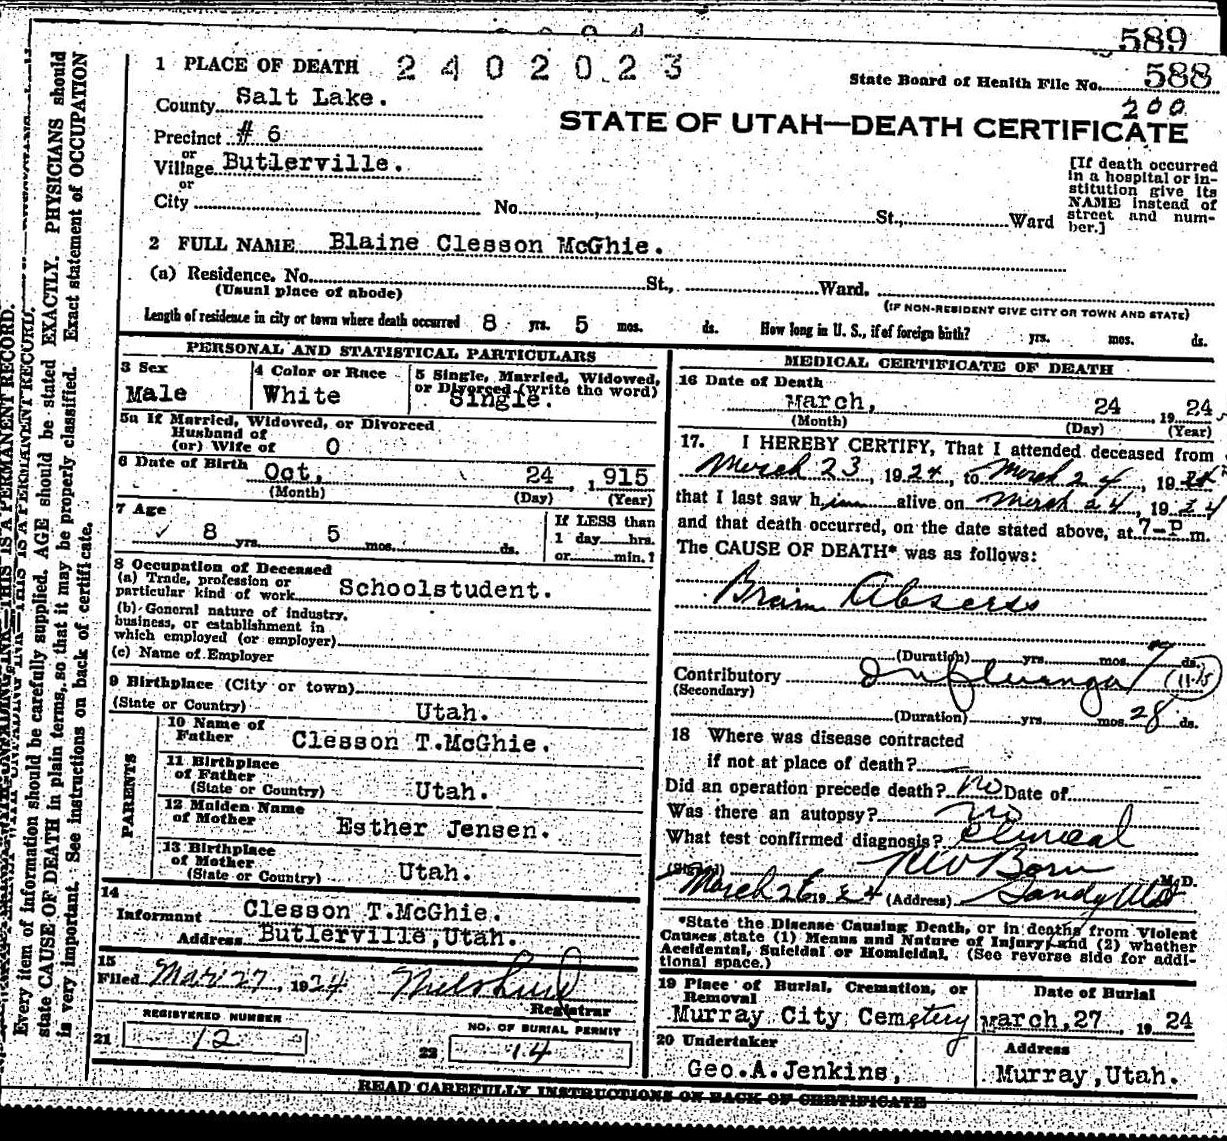 589
1 PLACE OF DEATH 2402023
State Board of Health File No. 588
200
County Salt Lake.
STATE OF UTAH—DEATH CERTIFICATE
Precinct # 6
or
Village Butlerville.
or
City No. St., Ward
[If death occurred
in a hospital or in-
stitution give its
NAME instead of
street and num-
ber.]
2 FULL NAME Blaine Clesson McGhie.
(a) Residence. No. St., Ward.
(Usual place of abode)
(IF NON-RESIDENT GIVE CITY OR TOWN AND STATE)
Length of residence in city or town where death occurred 8 yrs. 5 mos. ds. How long in U. S., if of foreign birth? yrs. mos. ds.
PERSONAL AND STATISTICAL PARTICULARS
3 Sex
Male
4 Color or Race
White
5 Single, Married, Widowed,
or Divorced (write the word)
Single.
5a If Married, Widowed, or Divorced
Husband of
(or) Wife of 0
6 Date of Birth Oct. 24, 1915
(Month) (Day) (Year)
7 Age
8 yrs. 5 mos. ds.
If LESS than
1 day hrs.
or min.?
8 Occupation of Deceased
(a) Trade, profession or
particular kind of work Schoolstudent.
(b) General nature of industry,
business, or establishment in
which employed (or employer)
(c) Name of Employer
9 Birthplace (City or town)
(State or Country) Utah.
PARENTS
10 Name of
Father Clesson T.McGhie.
11 Birthplace
of Father
(State or Country) Utah.
12 Maiden Name
of Mother Esther Jensen.
13 Birthplace
of Mother
(State or Country) Utah.
14
Informant Clesson T.McGhie.
Address Butlerville,Utah.
15
Filed Mar 27, 1924
Registrar
REGISTERED NUMBER
21 12
NO. OF BURIAL PERMIT
22 14
MEDICAL CERTIFICATE OF DEATH
16 Date of Death
March, 24 1924.
(Month) (Day) (Year)
17. I HEREBY CERTIFY, That I attended deceased from
March 23, 1924, to March 24, 1924
that I last saw him alive on March 24, 1924
and that death occurred, on the date stated above, at 7-P m.
The CAUSE OF DEATH* was as follows:
Brain Abscess
(Duration) yrs. mos. 7 ds.
Contributory Influenza (11-b)
(Secondary)
(Duration) yrs. mos. 28 ds.
18 Where was disease contracted
if not at place of death?
Did an operation precede death? no Date of
Was there an autopsy? no
What test confirmed diagnosis? Clinical
(Signed) M. D.
March 26 1924 (Address) Sandy Utah
*State the Disease Causing Death, or in deaths from Violent
Causes state (1) Means and Nature of Injury, and (2) whether
Accidental, Suicidal or Homicidal. (See reverse side for addi-
tional space.)
19 Place of Burial, Cremation, or
Removal
Murray City Cemetery
Date of Burial
March,27, 1924
20 Undertaker
Geo.A.Jenkins,
Address
Murray,Utah.
READ CAREFULLY INSTRUCTIONS ON BACK OF CERTIFICATE
Every item of information should be carefully supplied. AGE should be stated EXACTLY. PHYSICIANS should
state CAUSE OF DEATH in plain terms, so that it may be properly classified. Exact statement of OCCUPATION
is very important. See instructions on back of certificate.